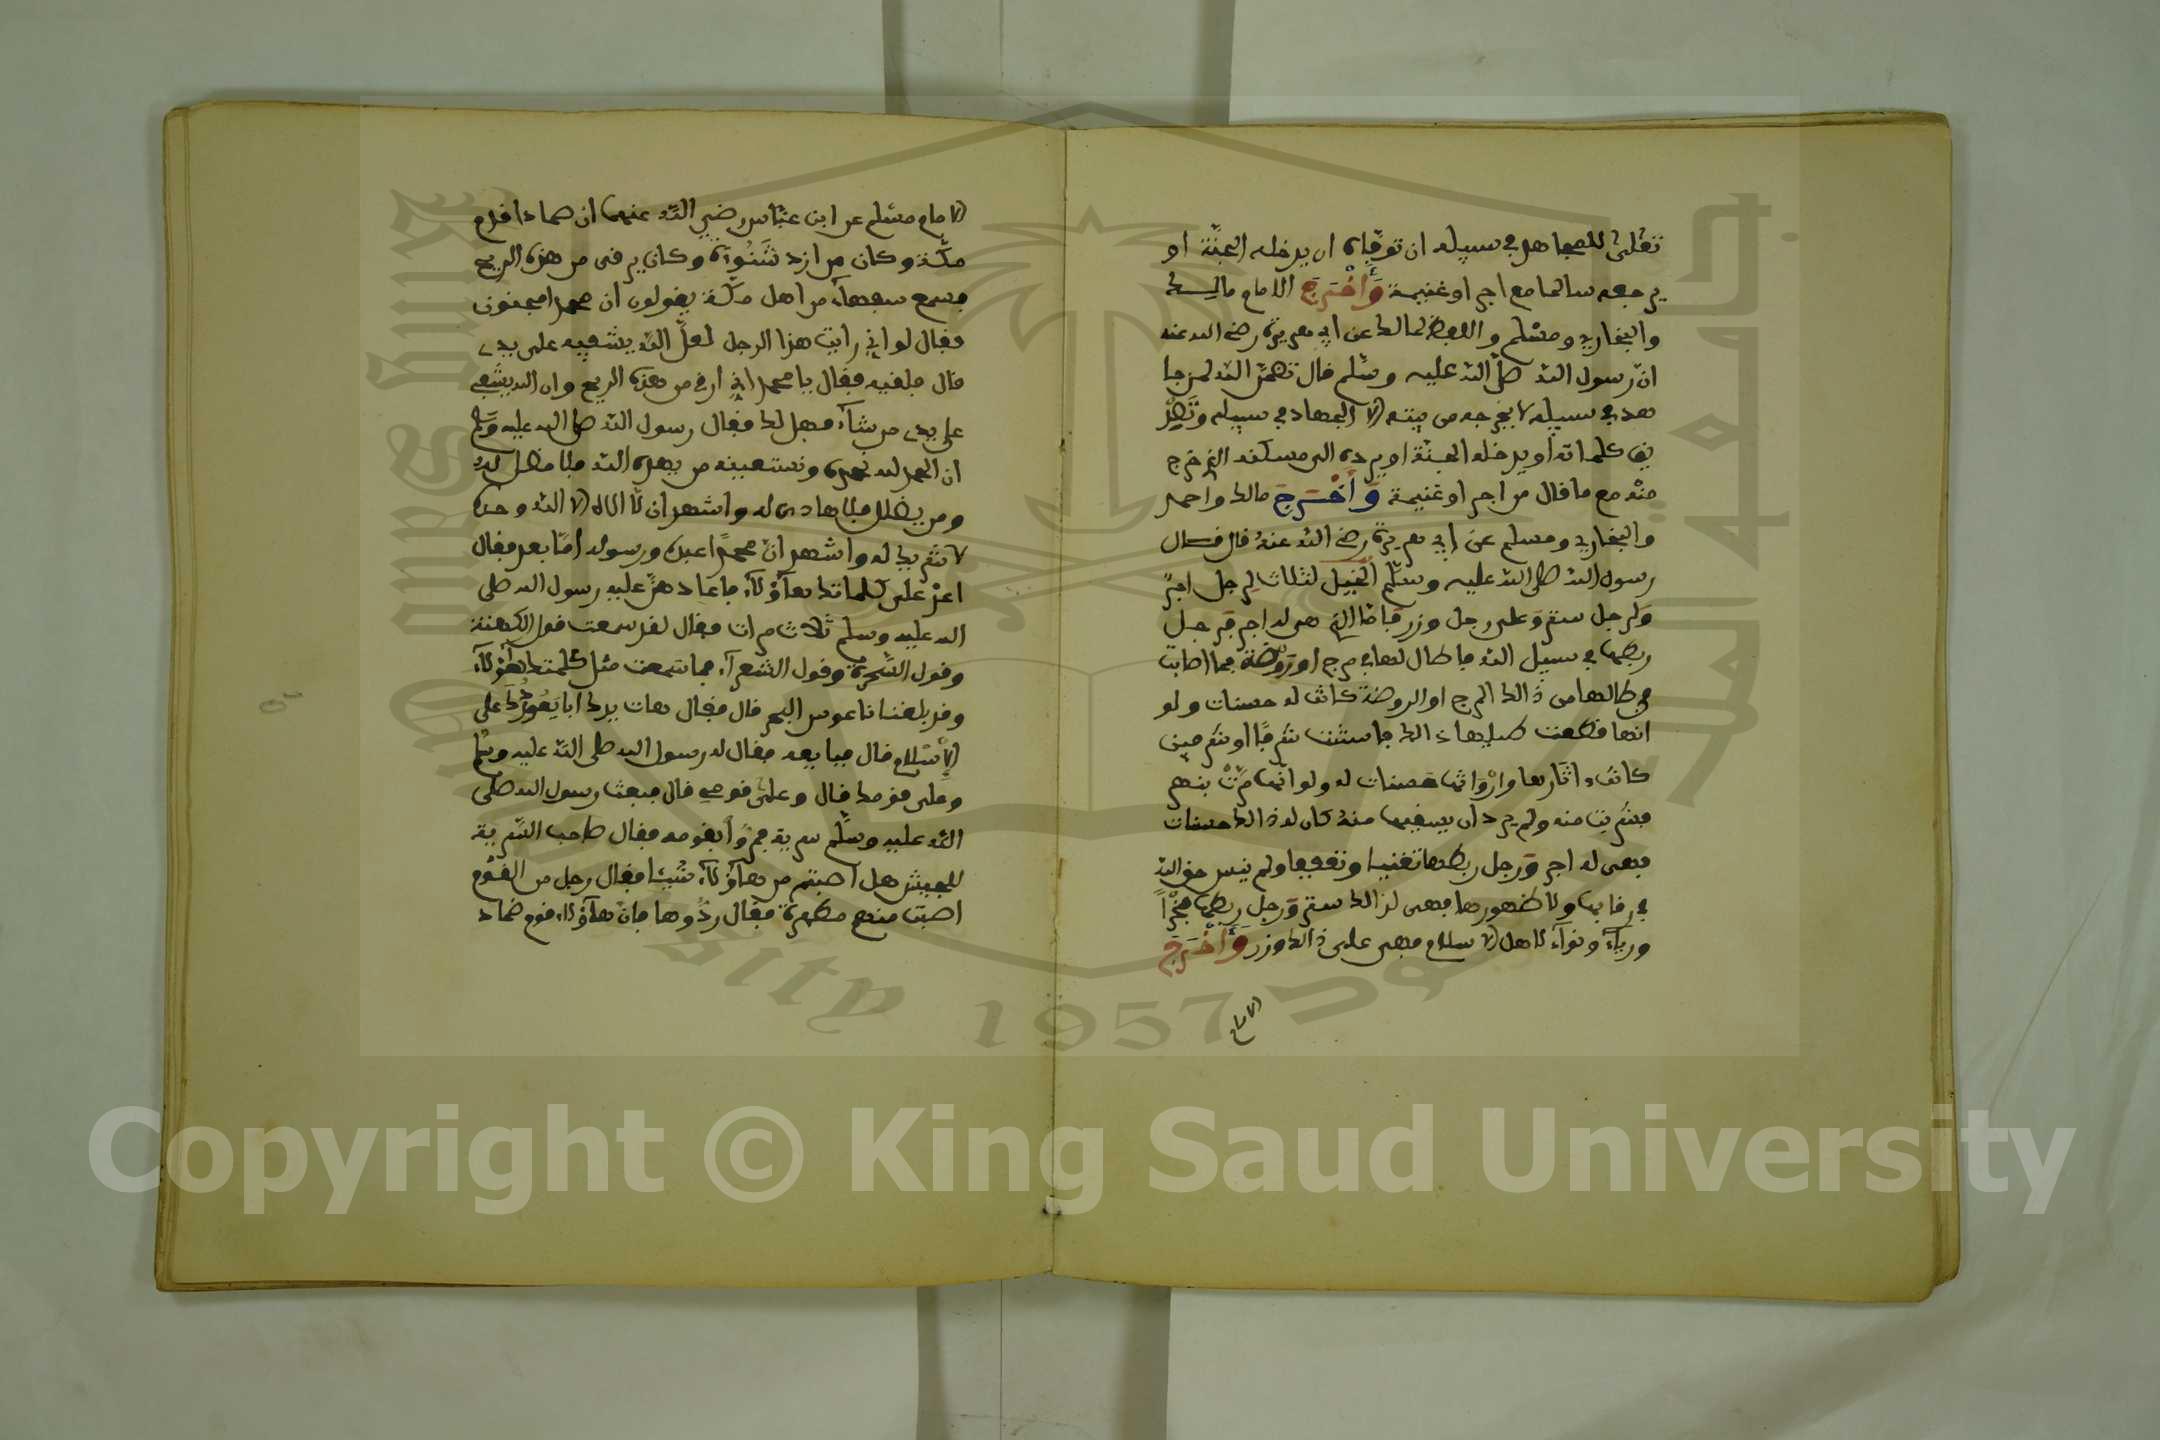 تعلى للمجاهد في سبيله ان توفاه ان يدخله الجنّة او
يرجعه سالما مع اجر او غنيمة وَأَخْرَجَ الامام مالك
والبخاري ومسْلم واللفظ لمالك عن ابي هريرة رضي الله عنه
انّ رسول الله صلّى الله عليه وسلّم قال تضمّن الله لمن جا
هد في سبيله لا يخرجه من بيته الا الجهاد في سبيله وتصْد
يق كلماته أو يدخله الجنّة او يرده الى مسكنه الذي خرج
منْه مع ما قال من اجر او غنيمة وَأَخْرَجَ مالك واحمد
والبخاري ومسلم عن ابي هريرة رضي الله عنهُ قال قال
رسول الله صلى الله عليه وسلّم الخيل لثلاث لرجل اجرٌ
وَلرجل ستر وَعلى رجل وزر فاما الذي هي له اجر فرجل
ربطها في سبيل الله فاطال لها في مرج او روضة فما اصابت
في طيلها من ذالك المرج او الروضة كانت له حسنات ولو
انها قطعت طيلها ذالك فاستنت شرفًا او شرفين
كانت ءاثارها وارْواثها حسنات له ولو انّها مرّتْ بنهر
فشربت منه ولم يرد ان يسقيها منهُ كان له ذالك حسنات
فهي له اجر وَرجل ربطها تغنيا وتعففا ولم ينس حق الله
في رقابها ولا ظهورها فهي لذالك ستر وَرجل ربطها فخْراً
ورياءً ونواء لاهل الاسلام فهي على ذالك وزر وَأَخْرَجَ
الامام
الامام مسْلم عن ابن عبّاس رضي اللّه عنهما ان ضمادا قدم
مكّة وكان من ازد شَنُوءة وكان يرقى من هذه الريح
فسمع سفهاء من اهل مكّة يقولون ان محمدا مجنون
فقال لو اني رايت هذا الرجل لعلّ الله يشفيه على يدي
قال فلقيه فقال يا محمد اني ارقي من هذه الريح وان الله يشفي
على يدي من شاء فهل لك فقال رسول الله صلى الله عليه وسلم
ان الحمد لله نحمده ونستعينه من يهده الله فلا مضل له
ومن يضلل فلا هادي له واشهد ان لّا الاه الا الله وحده
لا شريك له واشهد انّ محمدًا عبده ورسوله امّا بعد فقال
اعدْ على كلماتك هآؤلآء فاعاد هنّ عليه رسول الله صلى
الله عليه وسلم ثلاث مرات فقال لقد سمعت قول الكهنة
وقول السّحرة وقول الشعرآء فما سمعت مثل كلمتك هآؤلآء
وقد بلغنا ناعوس البحر قال فقال هات يدك ابايعْك على
الإسْلام قال فبايعه فقال له رسول الله صلى اللّه عليه وسلم
وعلى قومك قال وعلى قومي قال فبعث رسول الله صلى
اللّه عليه وسلّم سرية فمرّوا بقومه فقال صاحب السّرية
للجيش هل اصبتم من هآؤلآء شيئا فقال رجل من القوم
اصبت منهم مطهرة فقال ردّوها فانّ هآؤلاء قوم ضماد
Copyright © King Saud University
King Saud University 1957
جامعة الملك سعود